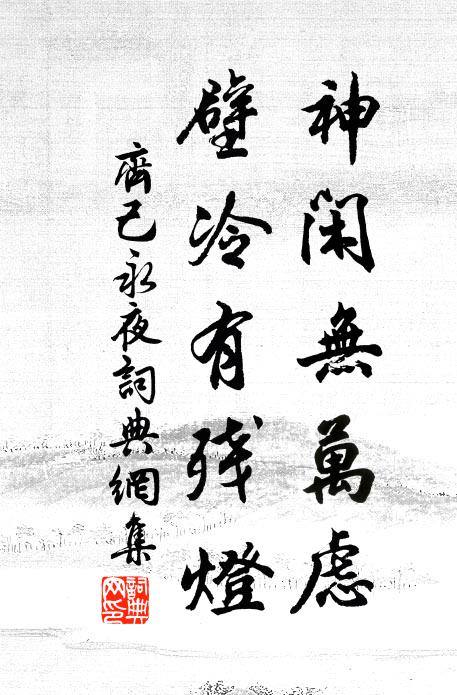 神閑無萬慮
壁冷有残燈
齊己永夜詞典網集
詞典網印